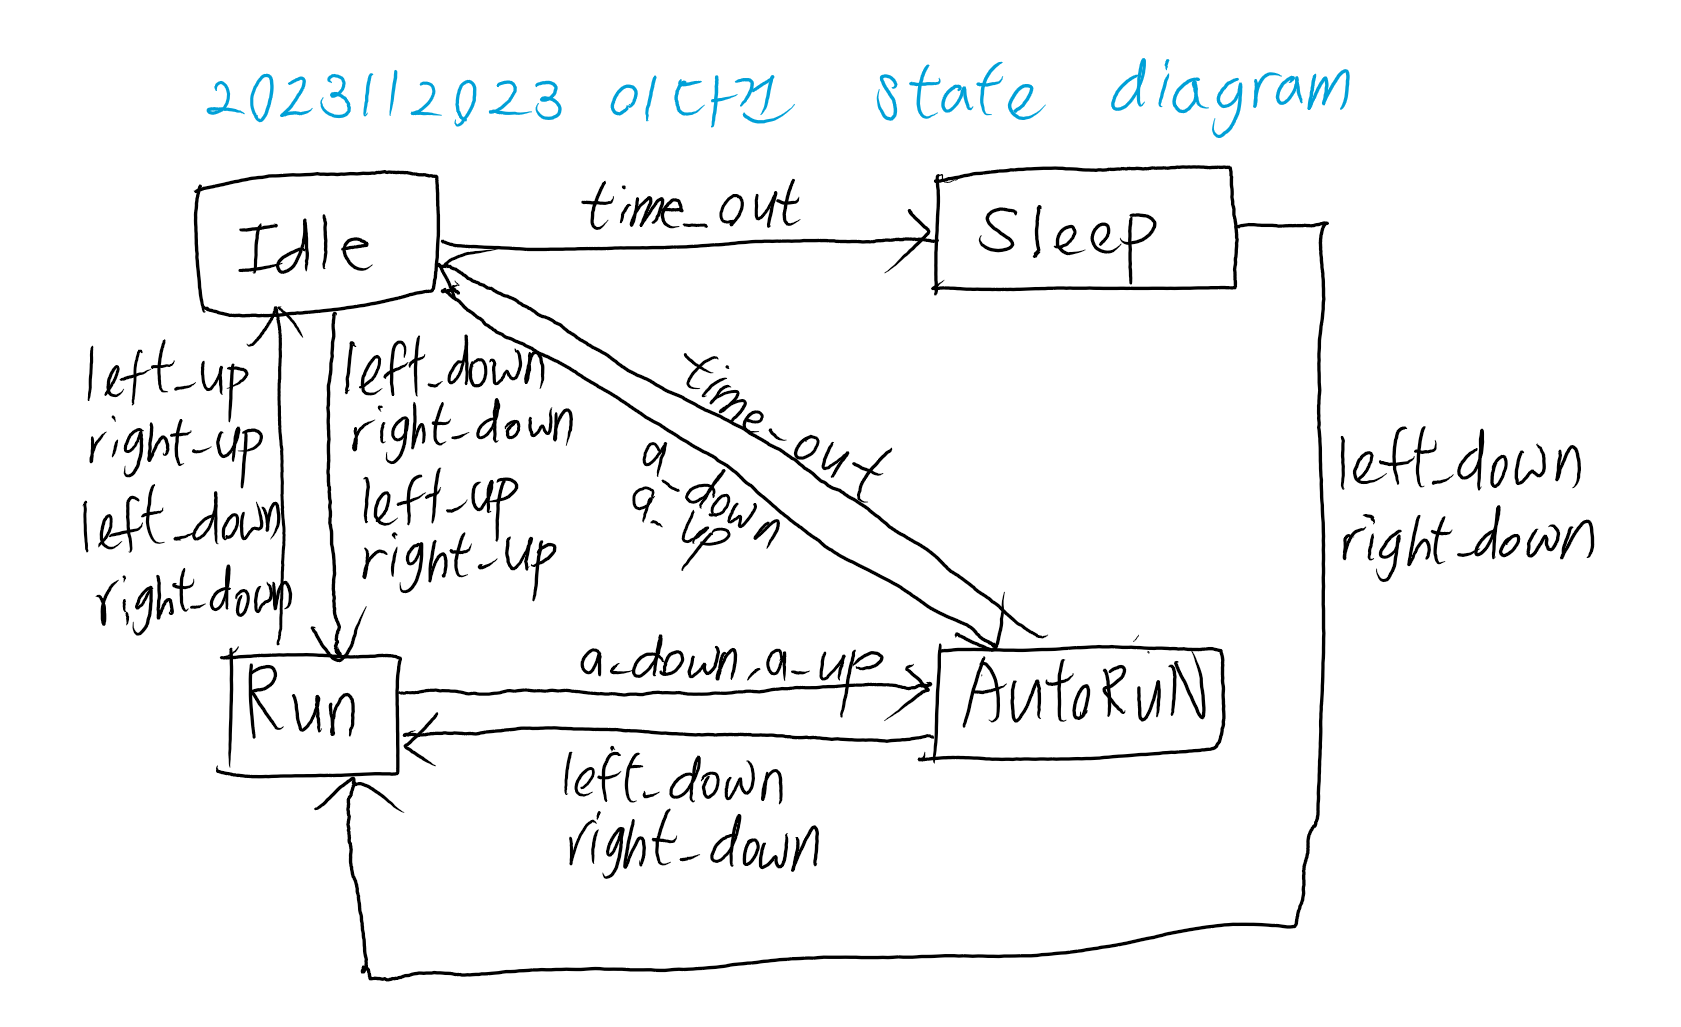 2023112023 이다건 state diagram
Idle
time_out
Sleep
left_up
right_up
left_down
right_down
left_down
right_down
left_up
right_up
time_out
a
a_down
a_up
left_down
right_down
Run
a_down, a_up
AutoRuN
left_down
right_down